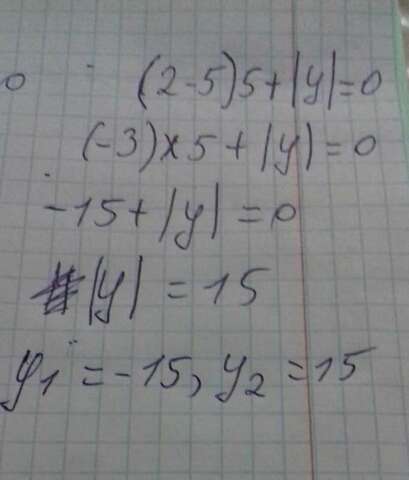 (2-5)5+|y|=0
(-3)×5+|y|=0
-15+|y|=0
|y|=15
y1=-15, y2=15